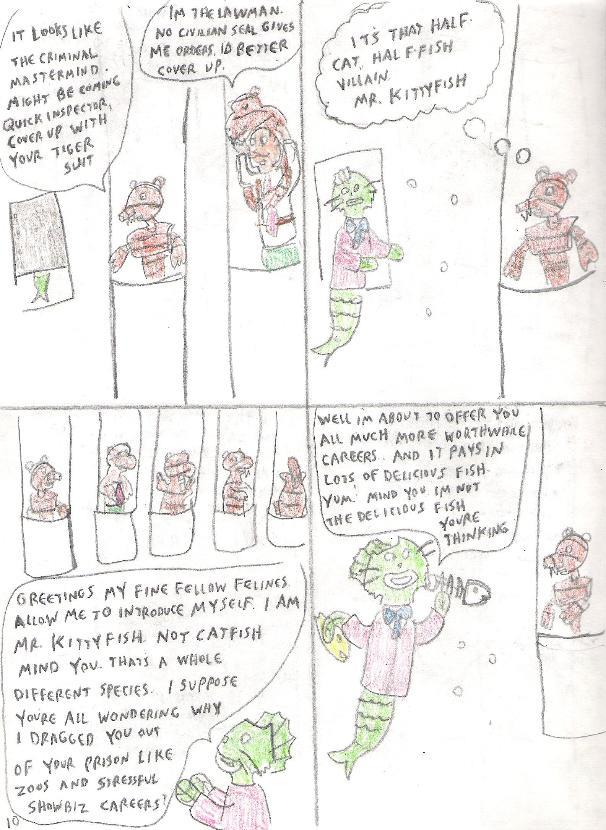 IT LOOKS LIKE
THE CRIMINAL
MASTERMIND.
MIGHT BE COMING
QUICK INSPECTOR,
COVER UP WITH
YOUR TIGER
SUIT
IM THE LAWMAN.
NO CIVILIAN SEAL GIVES
ME ORDERS. I'D BETTER
COVER UP.
ITS THAT HALF-
CAT, HALF-FISH
VILLAIN
MR. KITTYFISH
GREETINGS MY FINE FELLOW FELINES.
ALLOW ME TO INTRODUCE MYSELF. I AM
MR. KITTYFISH. NOT CATFISH
MIND YOU. THATS A WHOLE
DIFFERENT SPECIES. I SUPPOSE
YOURE ALL WONDERING WHY
I DRAGGED YOU OUT
OF YOUR PRISON LIKE
ZOOS AND STRESSFUL
SHOWBIZ CAREERS?
WELL IM ABOUT TO OFFER YOU
ALL MUCH MORE WORTHWHILE
CAREERS. AND IT PAYS IN
LOTS OF DELICIOUS FISH.
YUM. MIND YOU IM NOT
THE DELICIOUS FISH
YOU'RE
THINKING
10